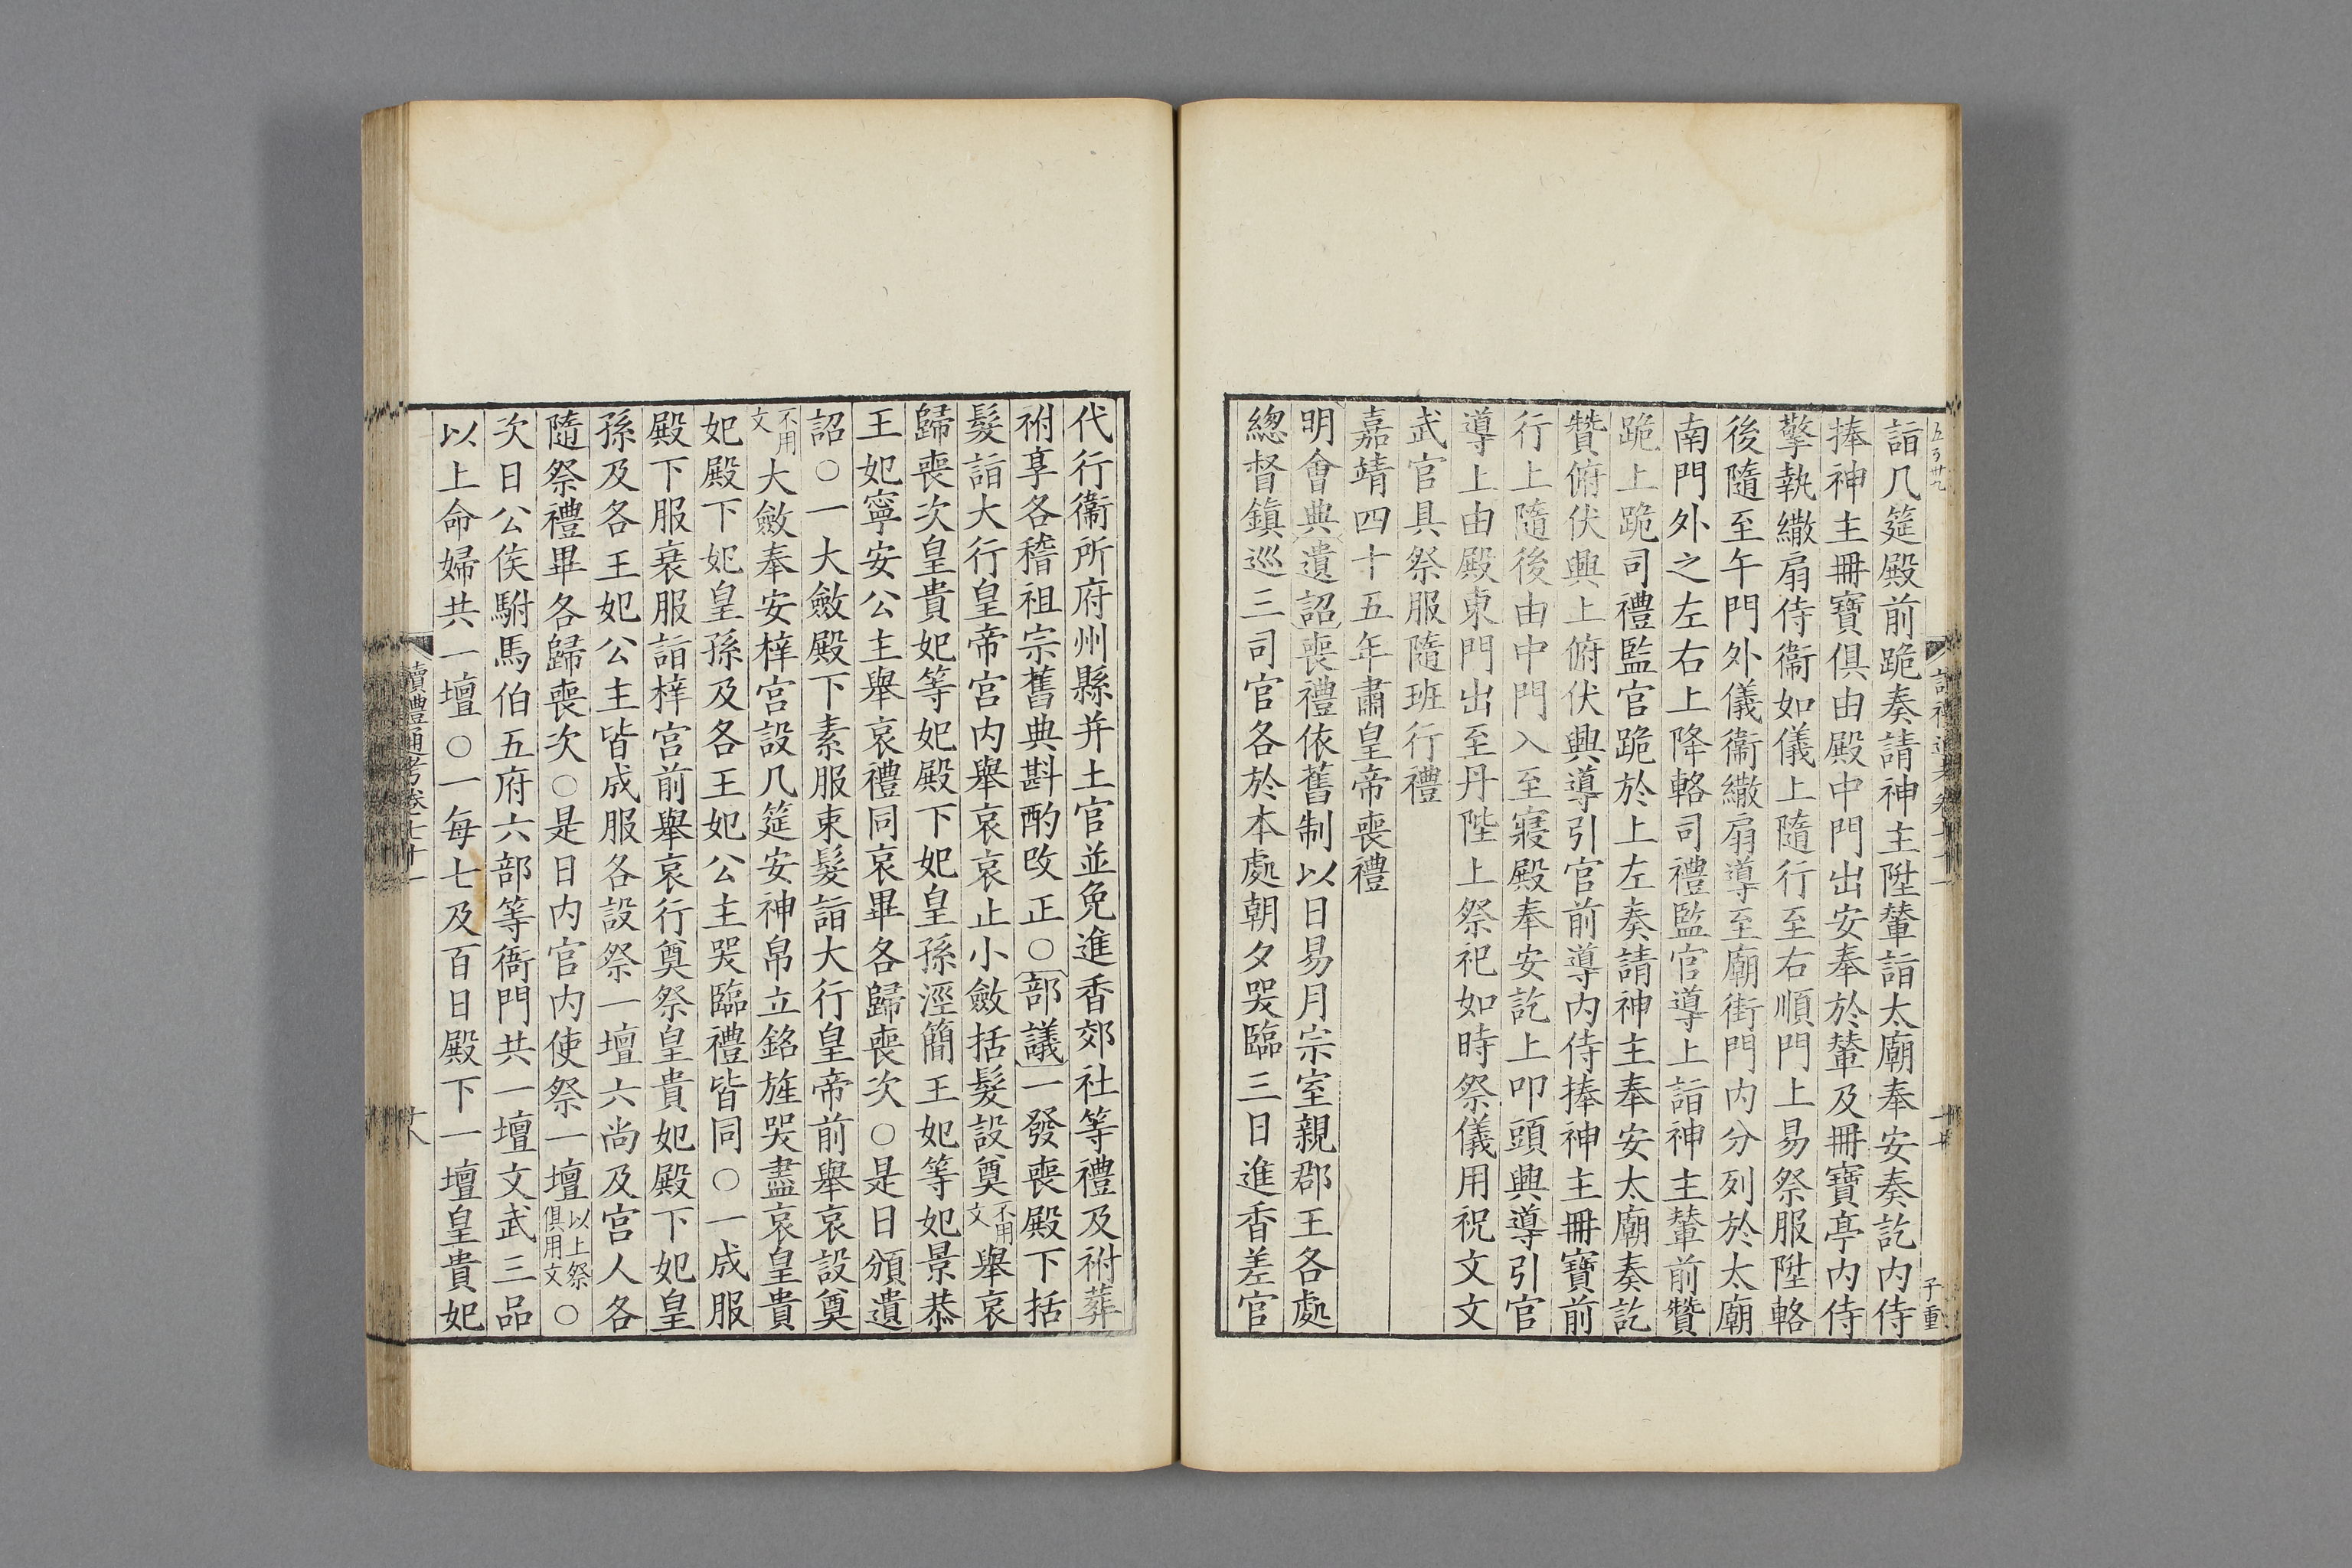 詣几筵殿前跪奏請神主陞輦詣太廟奉安奏訖内侍
捧神主冊寶俱由殿中門出安奉於輦及冊寶亭内侍
擎執繖扇侍衞如儀上隨行至右順門上易祭服陞輅
後隨至午門外儀衞繖扇導至廟街門内分列於太廟
南門外之左右上降輅司禮監官導上詣神主輦前贊
跪上跪司禮監官跪於上左奏請神主奉安太廟奏訖
贊俯伏興上俯伏興導引官前導内侍捧神主冊寶前
行上隨後由中門入至寢殿奉安訖上叩頭興導引官
導上由殿東門出至丹陛上祭祀如時祭儀用祝文文
武官具祭服隨班行禮
嘉靖四十五年肅皇帝喪禮
明會典遺詔喪禮依舊制以日易月宗室親郡王各處
總督鎮巡三司官各於本處朝夕哭臨三日進香差官
代行衞所府州縣并土官並免進香郊社等禮及祔葬
祔享各稽祖宗舊典斟酌改正○部議一發喪殿下括
髮詣大行皇帝宮内舉哀哀止小斂括髮設奠不用文舉哀
歸喪次皇貴妃等妃殿下妃皇孫涇簡王妃等妃景恭
王妃寧安公主舉哀禮同哀畢各歸喪次○是日頒遺
詔○一大斂殿下素服束髮詣大行皇帝前舉哀設奠
不用文大斂奉安梓宮設几筵安神帛立銘旌哭盡哀皇貴
妃殿下妃皇孫及各王妃公主哭臨禮皆同○一成服
殿下服衰服詣梓宮前舉哀行奠祭皇貴妃殿下妃皇
孫及各王妃公主皆成服各設祭一壇六尚及宮人各
隨祭禮畢各歸喪次○是日内官内使祭一壇以上祭俱用文○
次日公侯駙馬伯五府六部等衙門共一壇文武三品
以上命婦共一壇○一每七及百日殿下一壇皇貴妃
讀禮通考卷七十一
十八
子重